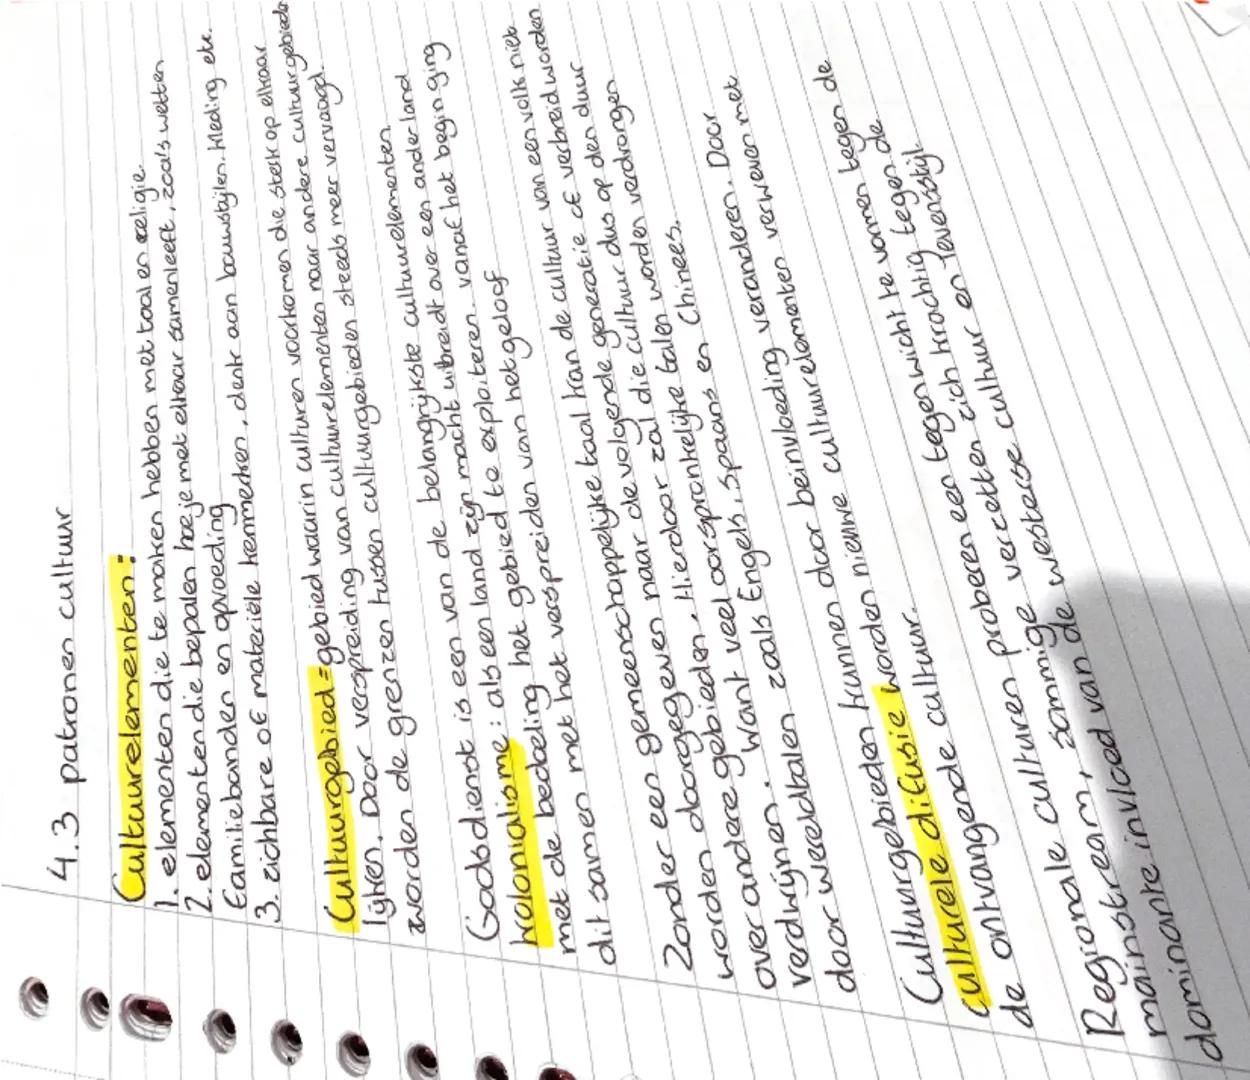 4.3 patronen cultuur
Cultuurelementen:
1. elementen die te maken hebben met taal en religie
2. elementen die bepalen hoe je met elkaar samenleeft, zoals wetten
familiebanden en opvoeding
3. zichbare of materiële kenmerken, denk aan bouwstijlen. kleding etc.
Cultuurgebied = gebied waarin culturen voorkomen die sterk op elkaar
lijken. Door verspreiding van cultuurelementen naar andere cultuurgebieden
worden de grenzen tussen cultuurgebieden steeds meer vervaagd.
Godsdienst is een van de belangrijkste cultuurelementen
kolonialisme: als een land zijn macht uitbreidt over een ander land
met de bedoeling het gebied te exploiteren. vanaf het begin ging
dit samen met het verspreiden van het geloof
Zonder een gemeenschappelijke taal kan de cultuur van een volk niet
worden doorgegeven naar de volgende generatie of verbreid worden
over andere gebieden. Hierdoor zal die cultuur dus op den duur
verdwijnen. Want veel oorspronkelijke talen worden verdrongen
door wereldtalen zoals Engels, Spaans en Chinees.
Cultuurgebieden kunnen door beinvloeding veranderen. Door
culturele difusie worden nieuwe cultuurelementen verweven met
de ontvangende cultuur.
Regionale culturen proberen een tegenwicht te vormen tegen de
mainstream, sommige verzetten zich krachtig tegen de
dominante invloed van de westerse cultuur en levensstijl.